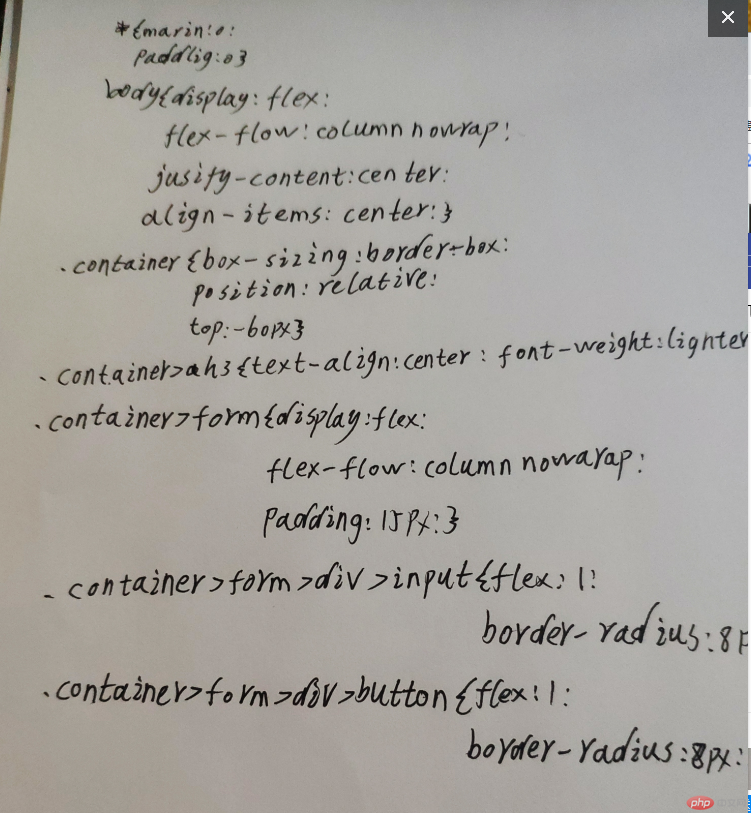 *{marin:0:
paddlig:0}
body{display:flex:
flex-flow:column nowrap:
jusify-content:center:
align-items:center:}
.container{box-sizing:border-box:
position:relative:
top:-60px}
.container>ah3{text-align:center:font-weight:lighter
.container>form{display:flex:
flex-flow:column nowarap:
padding:15px:}
.container>form>div>input{flex:1:
border-radius:8P
.container>form>div>button{flex:1:
border-radius:8px:
php